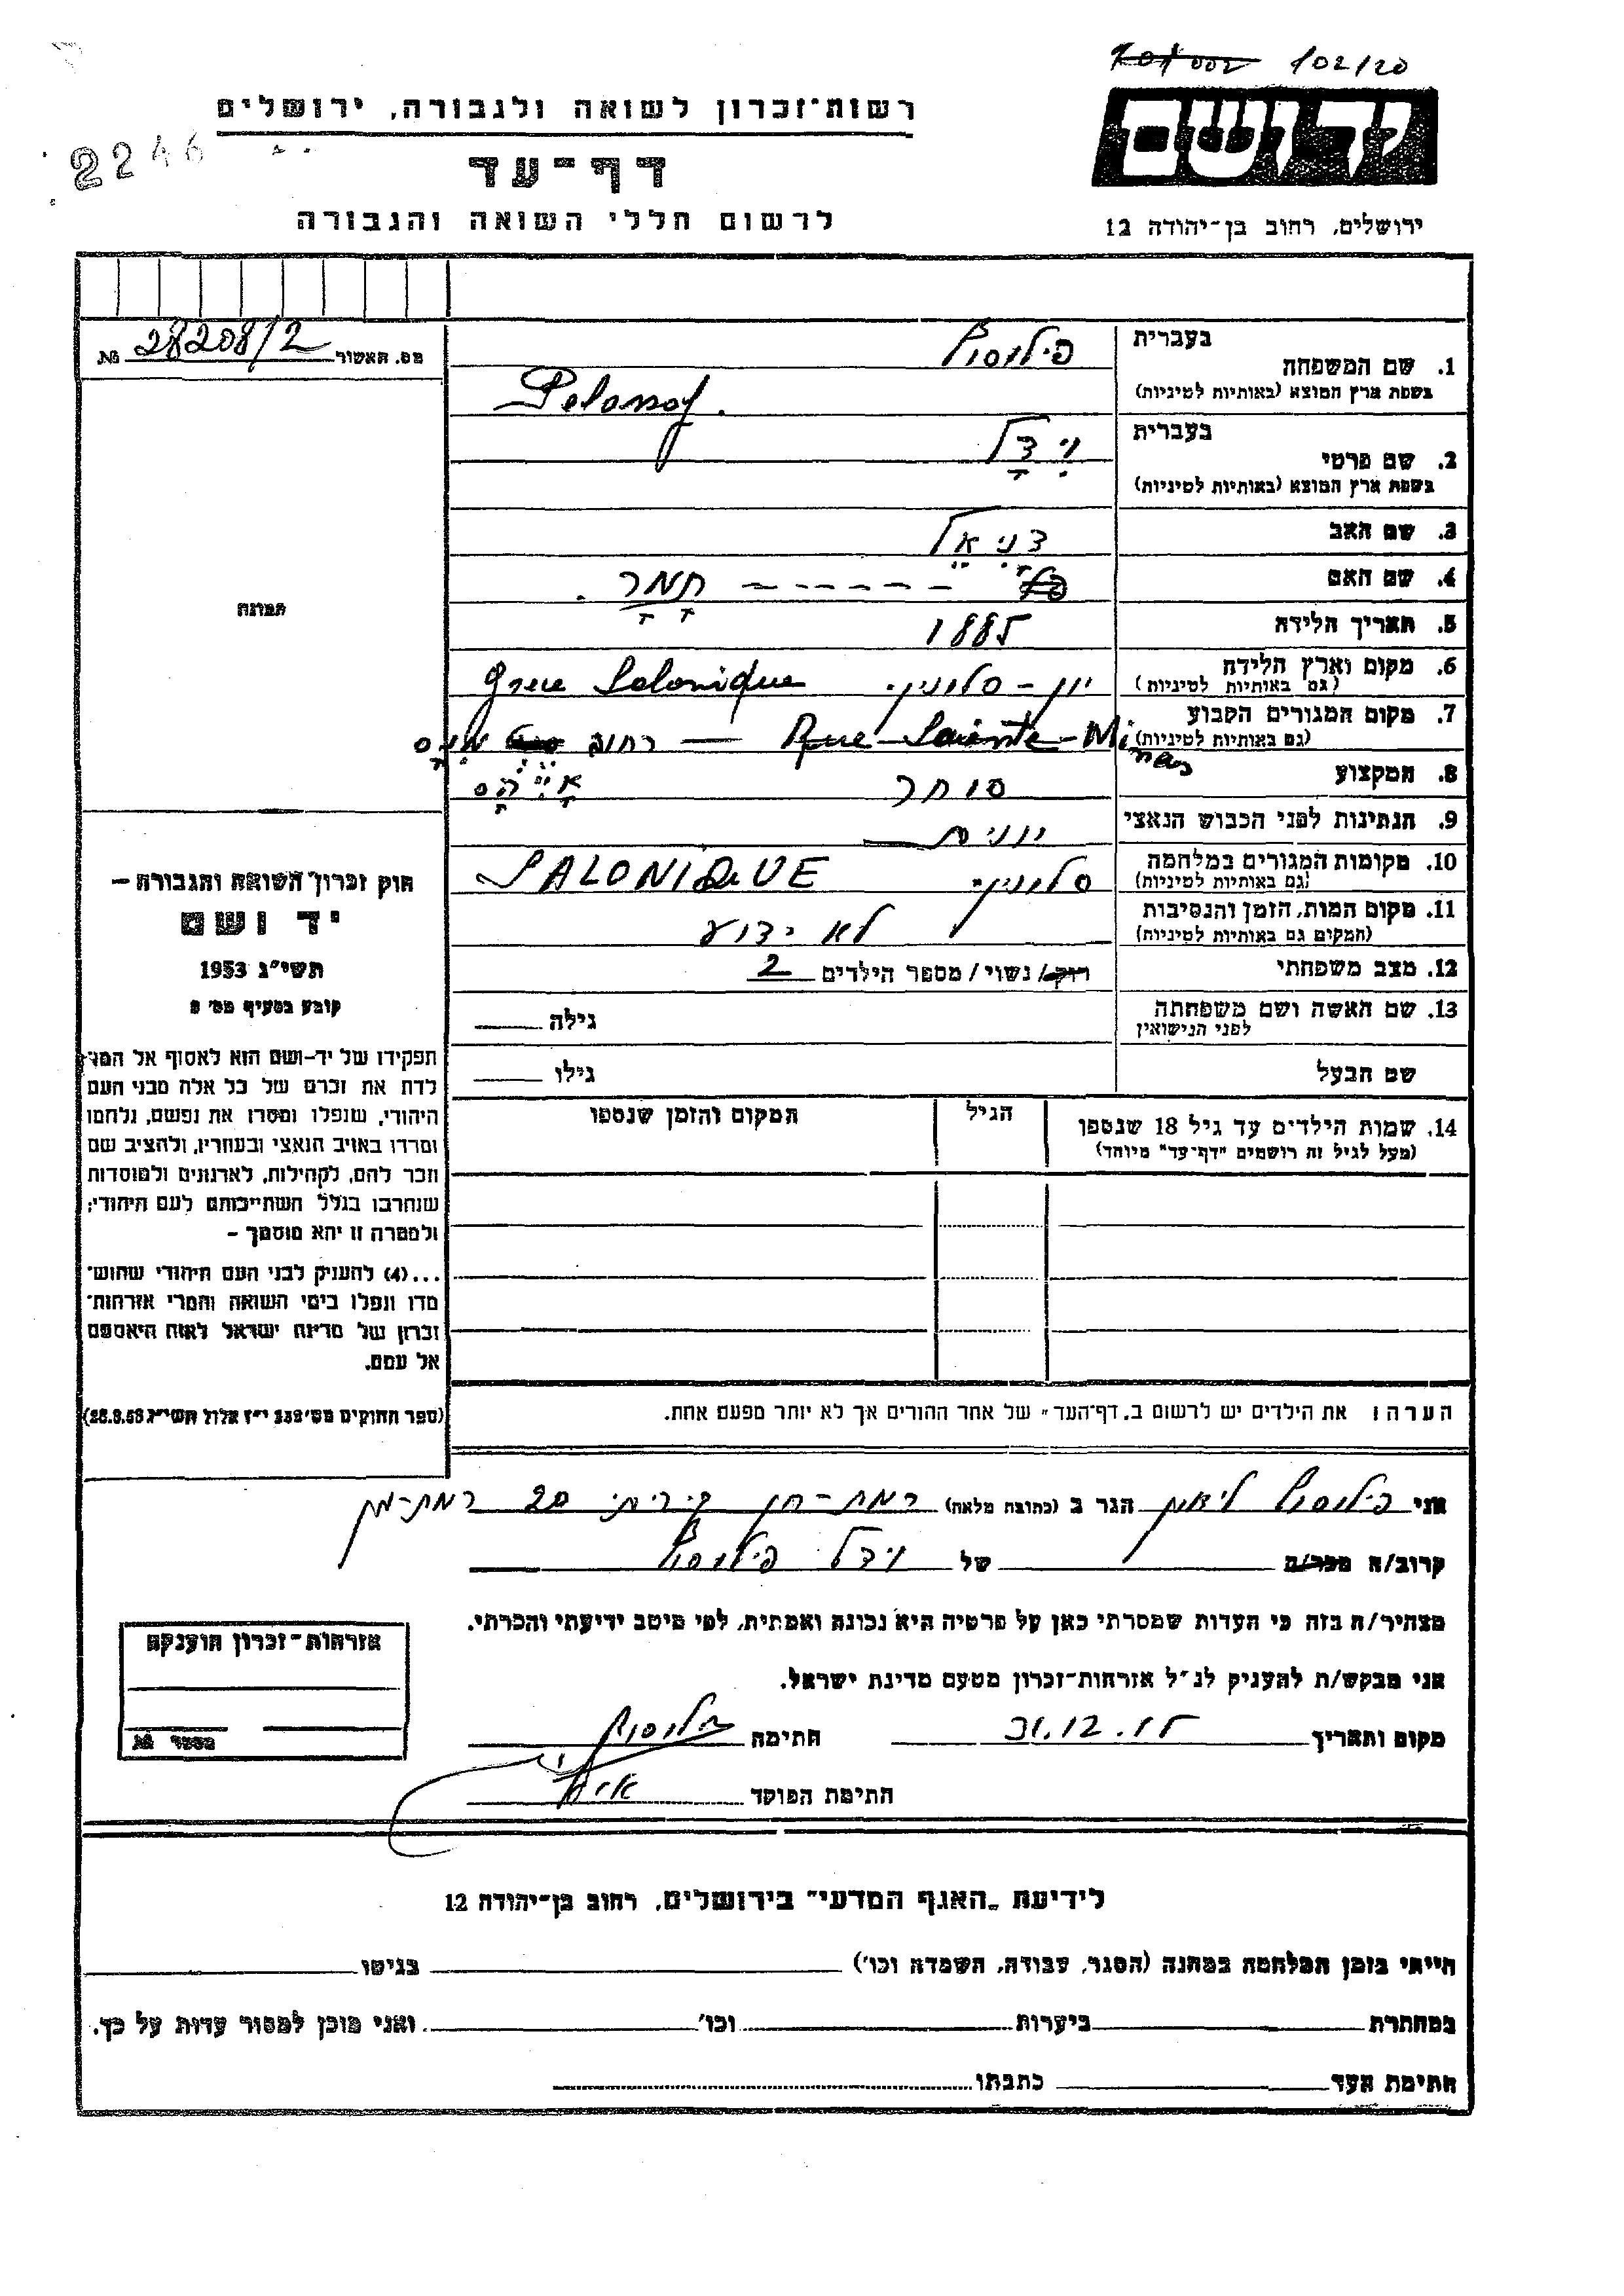 102/20
רשות־זכרון לשואה ולגבורה, ירושלים
יד ושם
2246
דף־עד
לרשום חללי השואה והגבורה
ירושלים, רחוב בן־יהודה 12
מס. האשור 28208/2 №
בעברית
1. שם המשפחה פילוסוף
בשפת ארץ המוצא (באותיות לטיניות) Pelossof.
בעברית
2. שם פרטי וִידָל
בשפת ארץ המוצא (באותיות לטיניות)
3. שם האב דניאל
4. שם האם תמר.
5. תאריך הלידה 1885
6. מקום וארץ הלידה יון - סלוניקי Grece Salonique
(גם באותיות לטיניות)
7. מקום המגורים הקבוע
(גם באותיות לטיניות) Rue Sainte-Minas — רחוב
8. המקצוע סוחר
9. הנתינות לפני הכבוש הנאצי יונית
10. מקומות המגורים במלחמה סלוניקי SALONIQUE
(גם באותיות לטיניות)
11. מקום המות, הזמן והנסיבות לא ידוע
(המקום גם באותיות לטיניות)
12. מצב משפחתי רווק/ נשוי/ מספר הילדים 2
13. שם האשה ושם משפחתה גילה
לפני הנישואין
שם הבעל גילו
14. שמות הילדים עד גיל 18 שנספו הגיל המקום והזמן שנספו
(מעל לגיל זה רושמים "דף־עד" מיוחד)
הערה: את הילדים יש לרשום ב„דף־העד" של אחד ההורים אך לא יותר מפעם אחת.
תמונה
חוק זכרון השואה והגבורה —
יד ושם
תשי"ג 1953
קובע בסעיף מס' 2
תפקידו של יד-ושם הוא לאסוף אל המו־
לדת את זכרם של כל אלה מבני העם
היהודי, שנפלו ומסרו את נפשם, נלחמו
ומרדו באויב הנאצי ובעוזריו, ולהציב שם
וזכר להם, לקהילות, לארגונים ולמוסדות
שנחרבו בגלל השתייכותם לעם היהודי;
ולמטרה זו יהא מוסמך —
...(4) להעניק לבני העם היהודי שהוש־
מדו ונפלו בימי השואה והמרי אזרחות־
זכרון של מדינת ישראל לאות היאספם
אל עמם.
(ספר החוקים מס' 132 י"ז אלול תשי"ג 28.8.53)
אני פילוסוף ליאון הגר ב (כתובת מלאה) רמת-חן קיריתי 20 רמת-גן
קרוב/ה מכר/ה של וידל פילוסוף
מצהיר/ה בזה כי העדות שמסרתי כאן על פרטיה היא נכונה ואמתית, לפי מיטב ידיעתי והכרתי.
אני מבקש/ת להעניק לנ"ל אזרחות־זכרון מטעם מדינת ישראל.
מקום ותאריך 31.12.55 חתימה פילוסוף
חתימת הפוקד
אזרחות־זכרון הוענקה
מספר №
לידיעת „האגף המדעי" בירושלים, רחוב בן־יהודה 12
הייתי בזמן המלחמה במחנה (הסגר, עבודה, השמדה וכו') בגיטו
במחתרת ביערות וכו' ואני מוכן למסור עדות על כך.
חתימת העד כתבתו